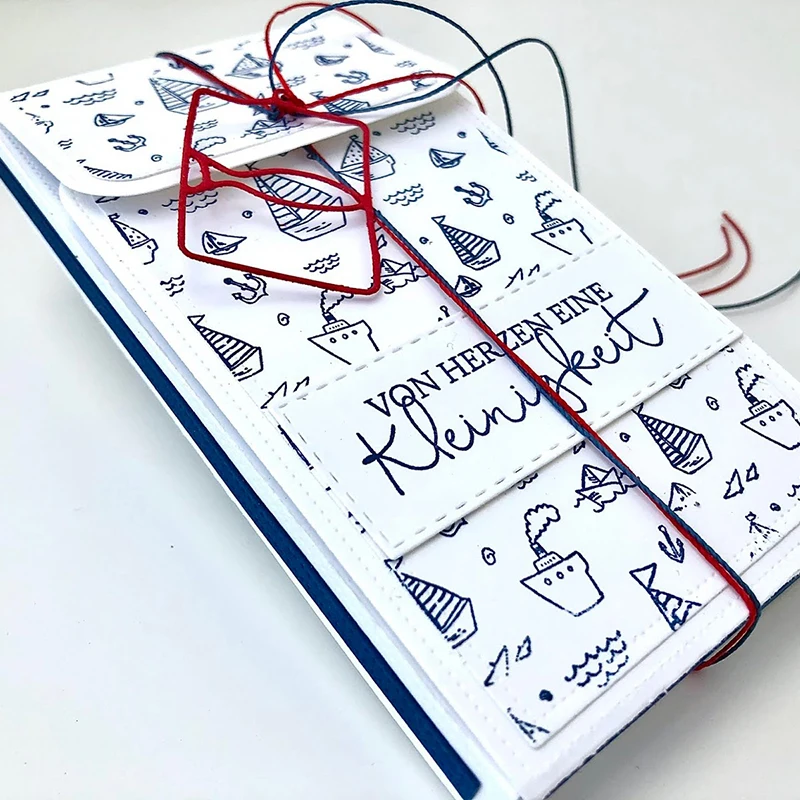 VON HERZEN EINE
Kleinigkeit